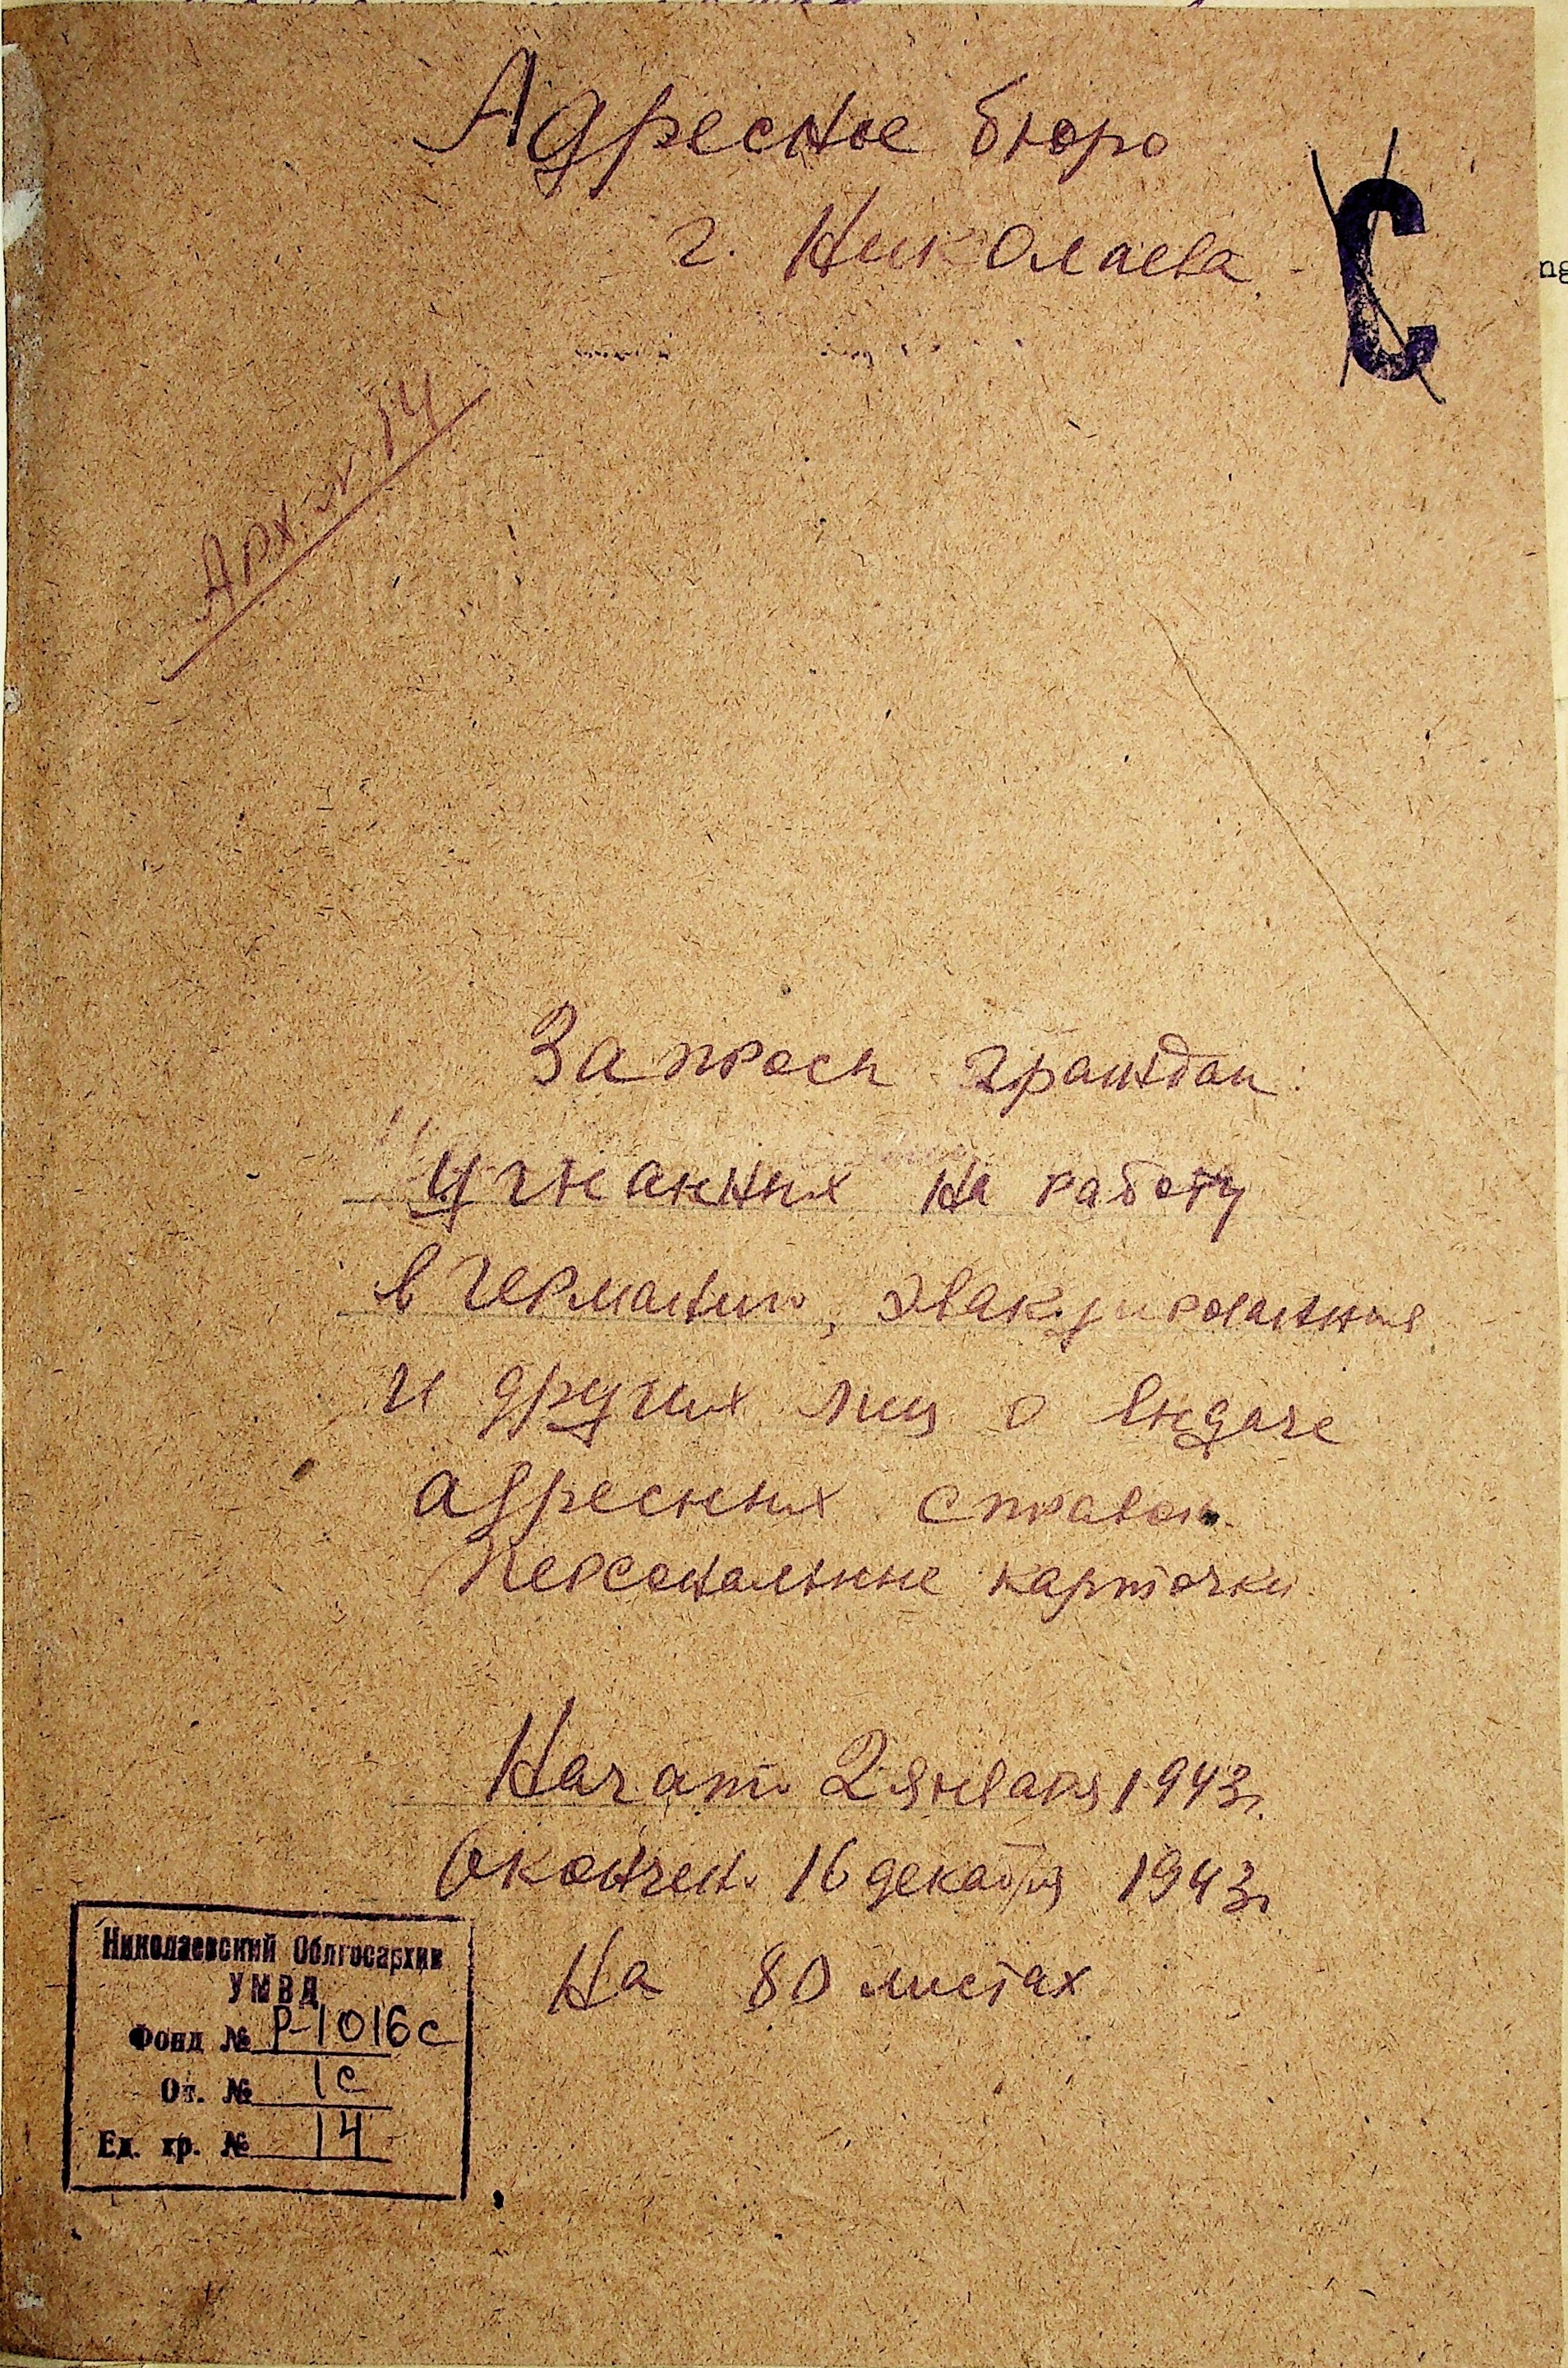 Адресное бюро
г. Николаева
С
ng
Арх. № 14
Запросы граждан
угнанных на работу
в Германию, эвакуированных
и других лиц о выдаче
адресных справок.
Персональные карточки
Начато 2 января 1943 г.
Окончен. 16 декабря 1943 г.
На 80 листах
Николаевский Облгосархив
УМВД
Фонд № Р-1016с
Оп. № 1с
Ед. хр. № 14